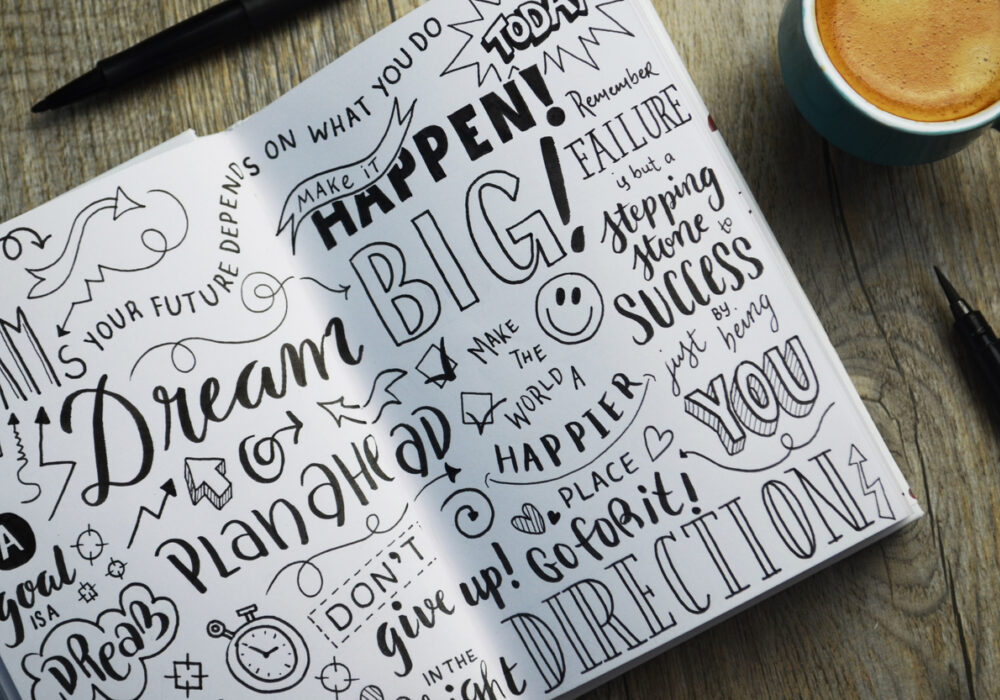 S YOUR FUTURE DEPENDS ON WHAT YOU DO
TODAY
MAKE IT
HAPPEN!
Dream
BIG!
PLAN AHEAD
A
goal
IS A
DReaM
DON'T
give up!
Remember
FAILURE
is but a
stepping
stone to
SUCCESS
MAKE
THE
WORLD A
HAPPIER
PLACE
just by being
YOU
Go foR it!
IN THE
right
DIRECTION